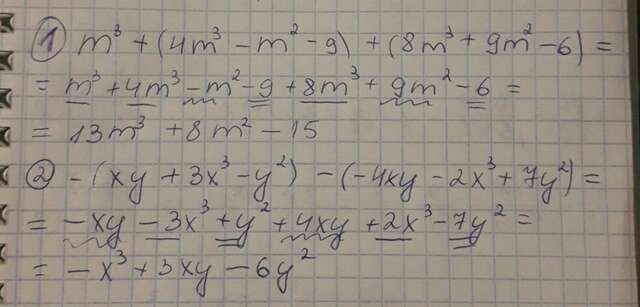 ① m³ + (4m³ - m² - 9) + (8m³ + 9m² - 6) =
= m³ + 4m³ - m² - 9 + 8m³ + 9m² - 6 =
= 13m³ + 8m² - 15
② - (xy + 3x³ - y²) - (-4xy - 2x³ + 7y²) =
= - xy - 3x³ + y² + 4xy + 2x³ - 7y² =
= - x³ + 3xy - 6y²